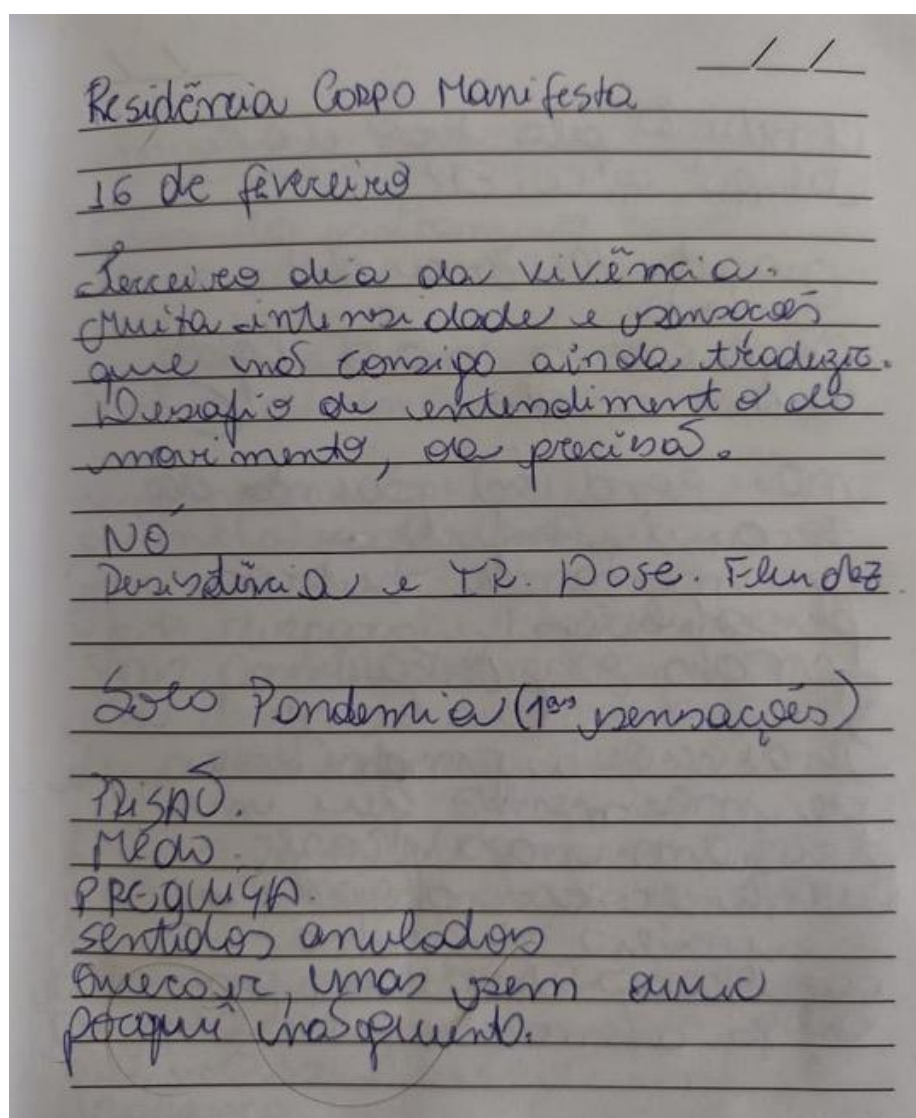 Residência Corpo Manifesta
16 de fevereiro
Terceiro dia da vivência.
Muita intensidade e sensações
que não consigo ainda traduzir.
Desafio de entendimento do
movimento, da precisão.
NÓ
e IR. Dose.
Solo Pandemia (1as sensações)
PRISÃO.
Medo.
PREGUIÇA.
sentidos anulados
Quero ir, mas sem
porque não aguento.